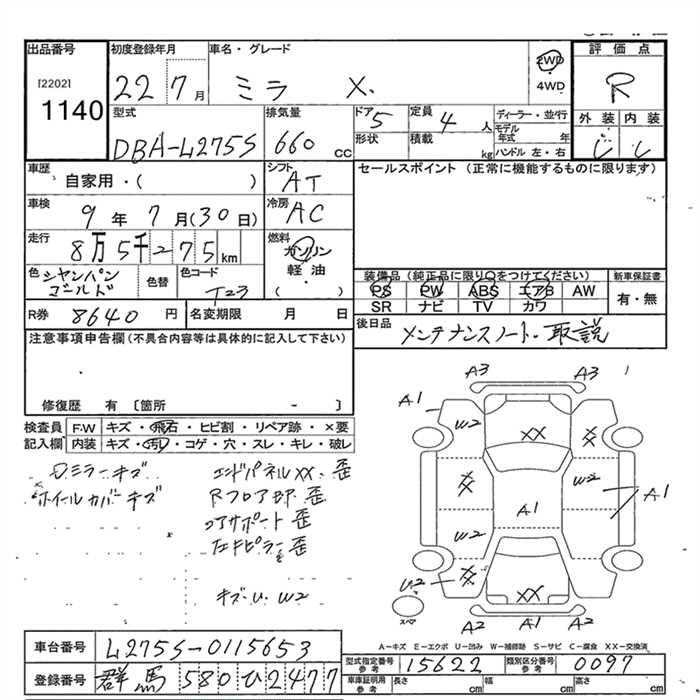 出品番号 初度登録年月 車名・グレード 2WD 4WD 評価点
[2202] 1140 22 7月 ミラ X. R
型式 排気量 ドア 5 定員 4人 ディーラー・並行 外装 内装
DBA-L275S 660cc 形状 積載 kg モデル年式 年 ハンドル 左・右
車歴 自家用・( ) シフト AT セールスポイント (正常に機能するものに限ります)
車検 9年 7月(30日) 冷房 AC
走行 8万5千275km 燃料 ガソリン 軽油・( )
色 シャンパンゴールド 色替 色コード T23
装備品(純正品に限り○をつけてください) 新車保証書
PS PW ABS エアB AW 有・無
SR ナビ TV カワ
R券 8640円 名変期限 月 日 後日品 メンテナンスノート・取説
注意事項申告欄(不具合内容等は具体的に記入して下さい)
修復歴 有 〔箇所 - 〕
検査員記入欄 F.W キズ・飛石・ヒビ割・リペア跡・×要
内装 キズ・汚・コゲ・穴・スレ・キレ・破レ
ミラーキズ
ホイールカバーキズ
エンドパネルXX・歪
Rフロア部 歪
コアサポート 歪
ピラー歪
キズ・U. W2
A3 A3
A1
W2 XX
XX W2
A1 A1
W2
U2 XX XX
スペア
A2 A1 A2
A-キズ E-エクボ U-凹み W-補修跡 S-サビ C-腐食 XX-交換済
車台番号 L275S-0115653
型式指定番号 参考 15622 類別区分番号 参考 0097
登録番号 群馬 580 ひ 2477
車庫証明用 参考 長さ cm 幅 cm 高さ cm